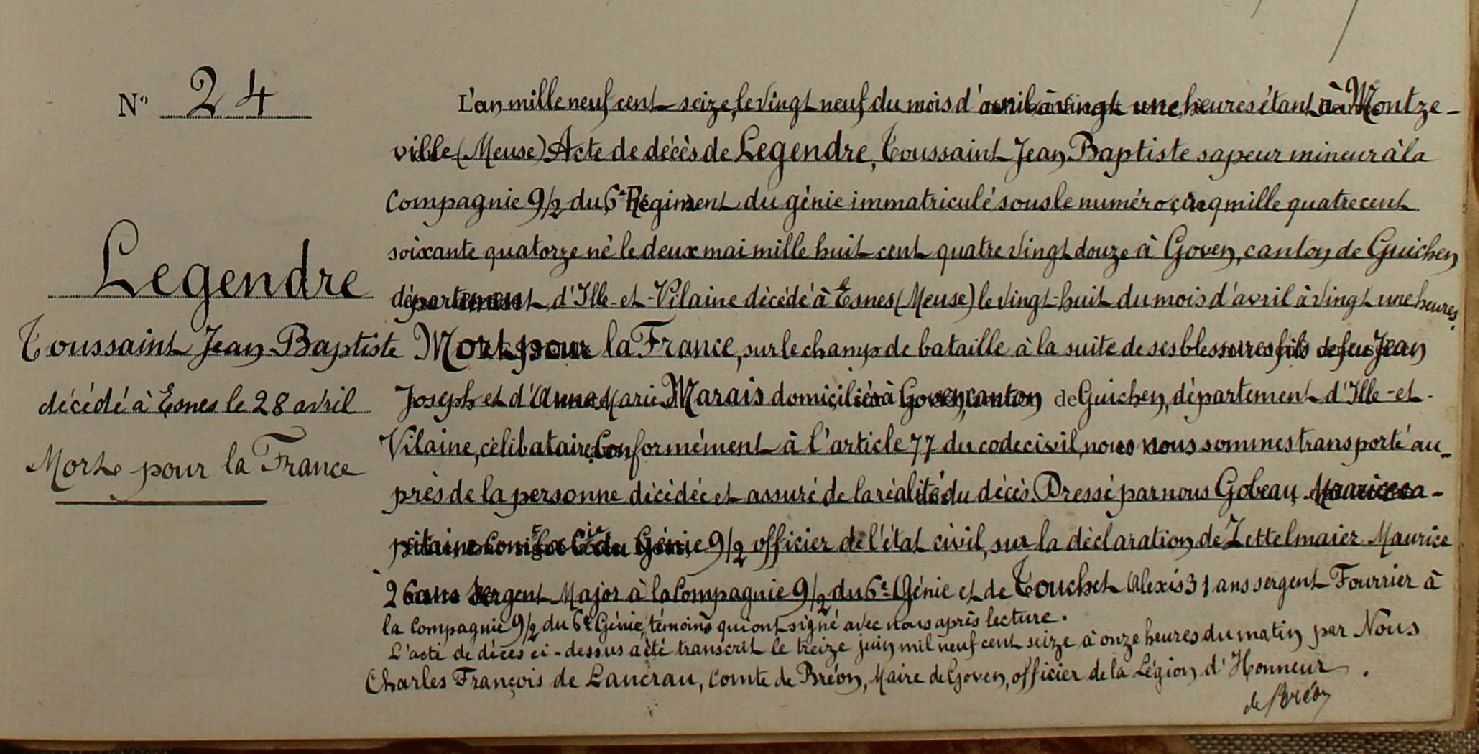 N° 24
Legendre
Toussaint Jean Baptiste
décédé à Esnes le 28 avril
Mort pour la France
L'an mille neuf cent seize, le vingt neuf du mois d'avril à vingt une heures étant à Montze-
ville (Meuse) Acte de décès de Legendre, Toussaint Jean Baptiste sapeur mineur à la
Compagnie 9/2 du 6e Régiment du génie immatriculé sous le numéro cinq mille quatre cent
soixante quatorze né le deux mai mille huit cent quatre vingt douze à Goven, canton de Guichen
département d'Ille-et-Vilaine décédé à Esnes (Meuse) le vingt-huit du mois d'avril à vingt une heures,
Mort pour la France, sur le champ de bataille à la suite de ses blessures fils de feu Jean
Joseph et d'Anne Marie Marais domiciliés à Goven, canton de Guichen, département d'Ille-et-
Vilaine, célibataire, Conformément à l'article 77 du code civil, nous nous sommes transporté au-
près de la personne décédée et assuré de la réalité du décès. Dressé par nous Gobeau, Maurice ca-
pitaine Comt la Cie du Génie 9/2 officier de l'état civil, sur la déclaration de Zettelmaier Maurice
26 ans Sergent Major à la Compagnie 9/2 du 6e Génie et de Touchet Alexis 31 ans sergent Fourrier à
la Compagnie 9/2 du 6e Génie, témoins qui ont signé avec nous après lecture.
L'acte de décès ci-dessus a été transcrit le treize juin mil neuf cent seize à onze heures du matin par Nous
Charles François de Lancrau, Comte de Bréon, Maire de Goven, officier de la Légion d'Honneur.
de Bréon